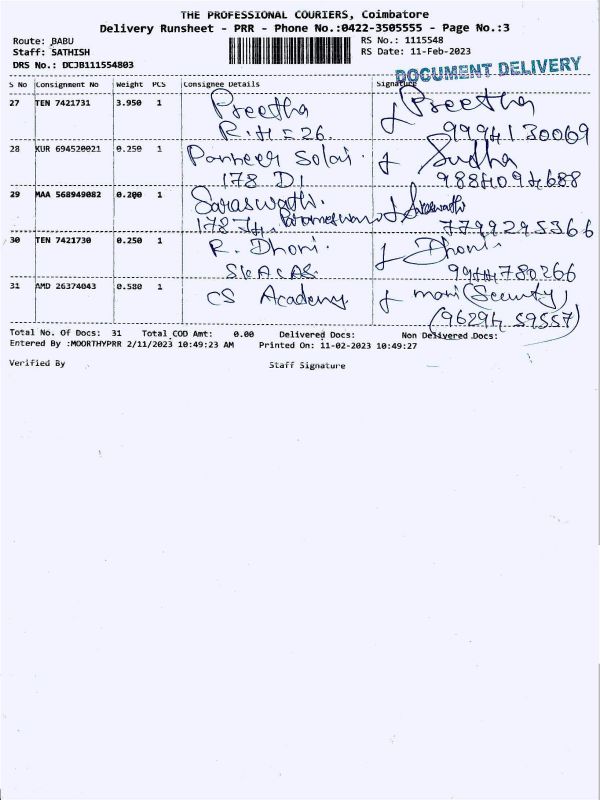 THE PROFESSIONAL COURIERS, Coimbatore
Delivery Runsheet - PRR - Phone No.:0422-3505555 - Page No.:3
Route: BABU
RS No.: 1115548
Staff: SATHISH
RS Date: 11-Feb-2023
DRS No.: DCJB111554803
DOCUMENT DELIVERY
S No Consignment No Weight PCS Consignee Details Signature
27 TEN 7421731 3.950 1 Preetha Preetha
R.H = 26. 9994130069
28 KUR 694520021 0.250 1 Panneer Solai. Sudha
178 D1 9884094688
29 MAA 568949082 0.200 1 Saraswathi. Saraswathi
178 74, 7799295366
30 TEN 7421730 0.250 1 R. Dhoni. Dhoni.
SKACAS. 9944780266
31 AMD 26374043 0.580 1 CS Academy. mani (Security)
(96294 59557)
Total No. Of Docs: 31 Total COD Amt: 0.00 Delivered Docs: Non Delivered Docs:
Entered By :MOORTHYPRR 2/11/2023 10:49:23 AM Printed On: 11-02-2023 10:49:27
Verified By Staff Signature